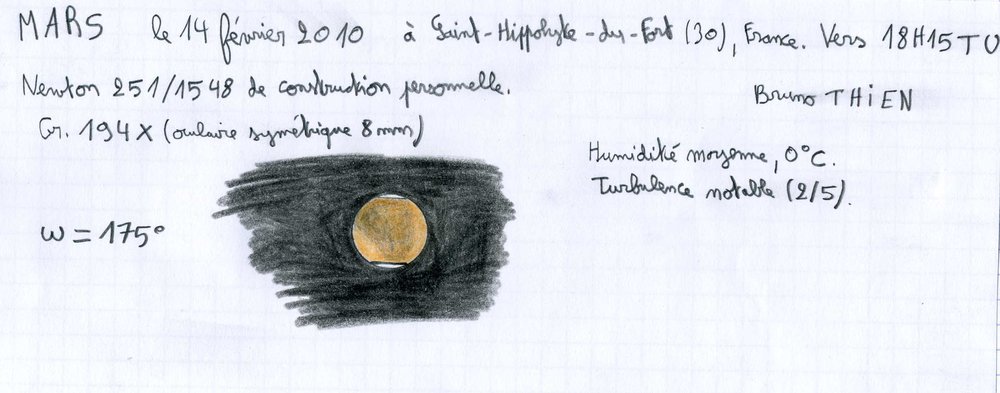 MARS le 14 février 2010 à Saint-Hippolyte-du-Fort (30), France. Vers 18H15 TU
Newton 251/1548 de construction personnelle.
Bruno THIEN
Gr. 194X (oculaire symétrique 8mm)
Humidité moyenne, 0°C.
Turbulence notable (2/5).
ω = 175°